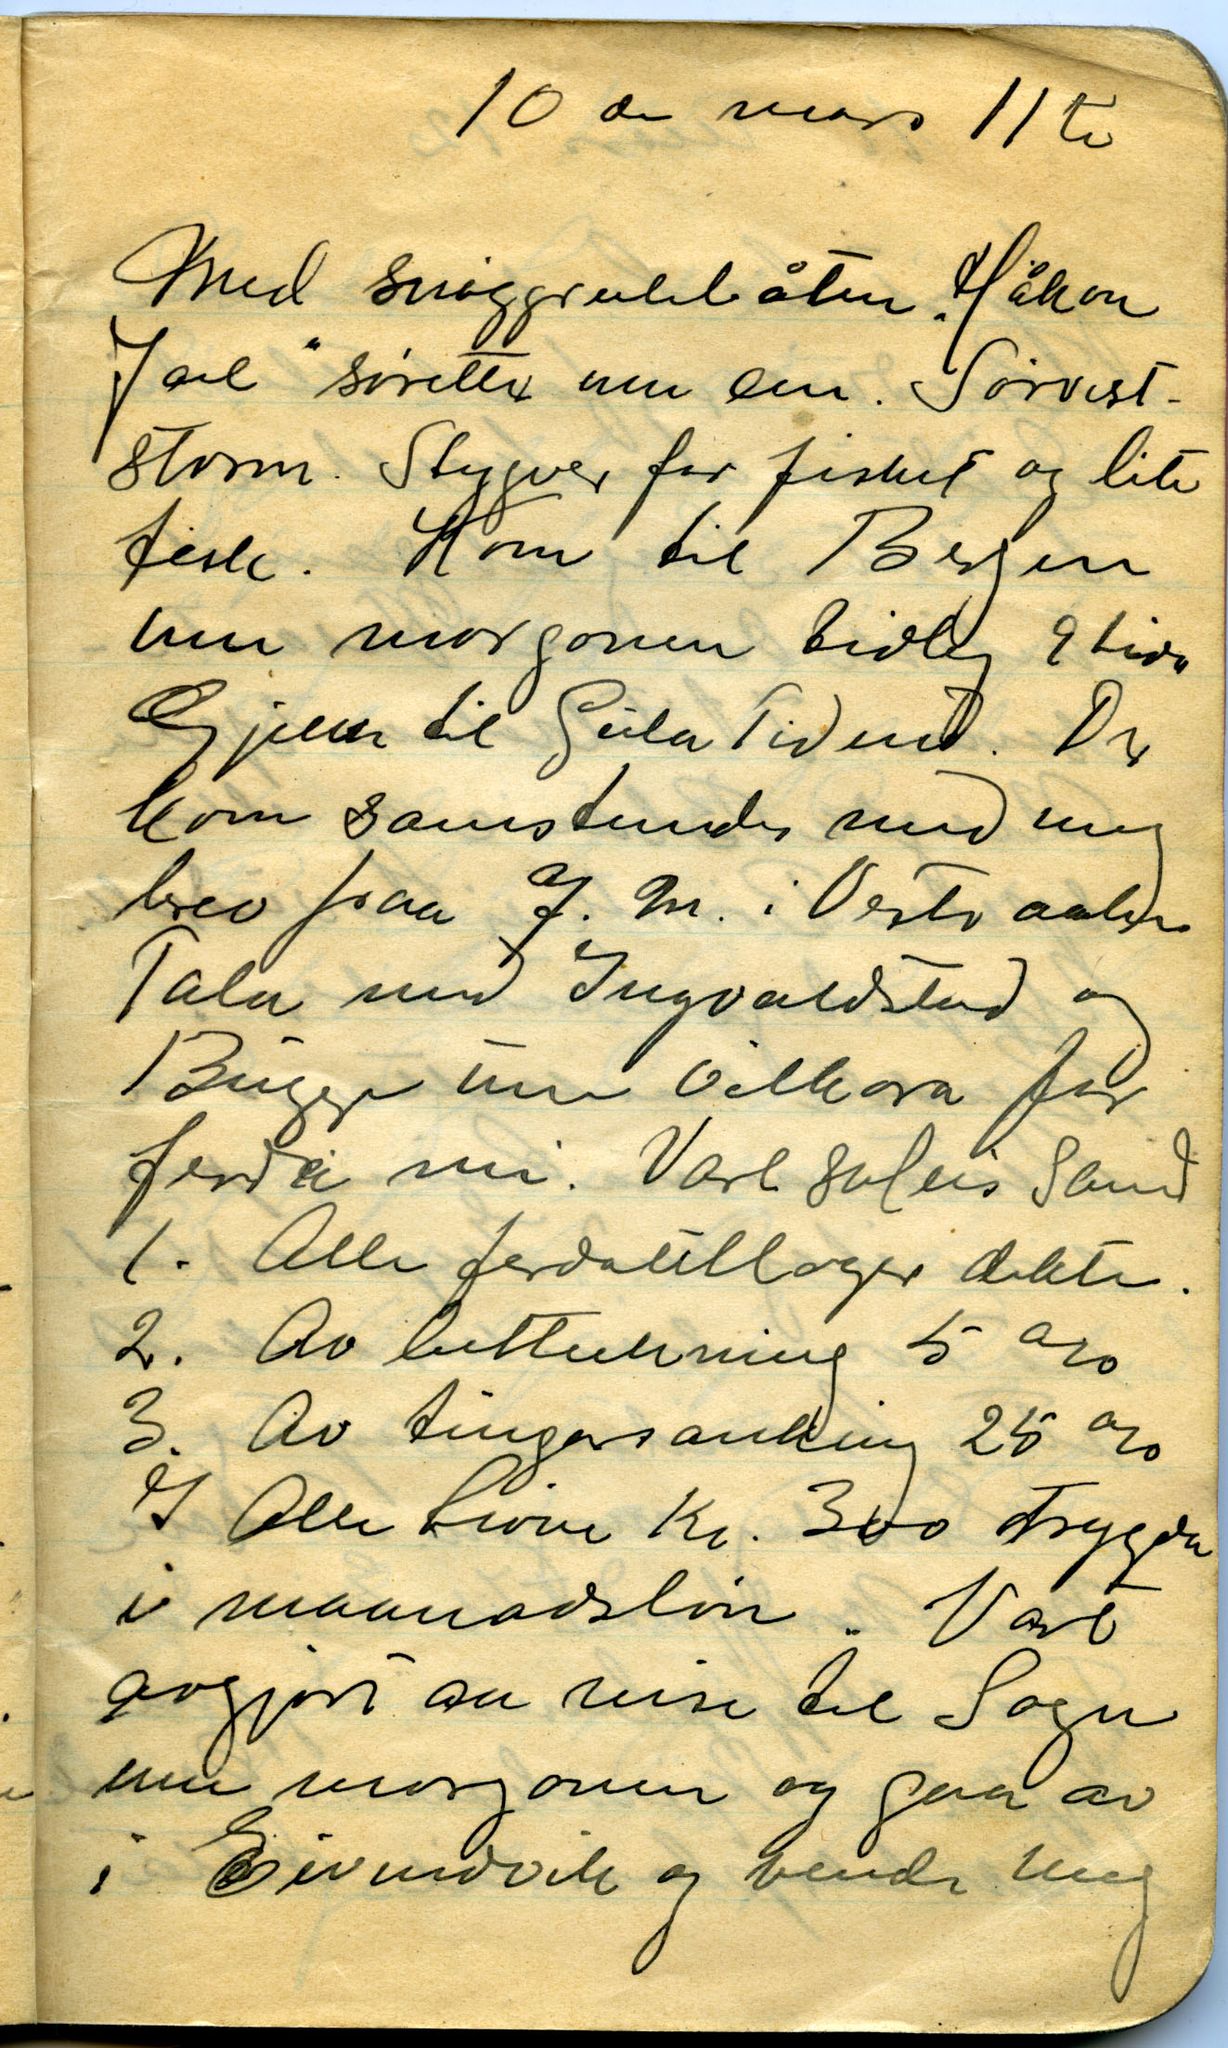 10 de mars 11te
Med snøggrutebåten „Håkon
Jarl" søretter um ein. Sørvest-
storm. Stygver for fisket og lite
fisk. Kom til Bergen
um morgonen tidleg 9 tida
Gjekk til Gula Tidend. Der
kom samstundes med meg
brev fraa J. M. i Vesteraalen
Tala med Ingvaldstad og
Bügge um vilkora for
ferda mi. Vart soleis samd
1. Alle ferdatillager dekte.
2. Av luttekning 5 %
3. Av tingarsanking 25 %
4 Alle Kr. 300 trygda
i maanadsløn. Vart
avgjort aa reise til Sogn
um morgonen og gaa av
i Eivindvik og vende meg